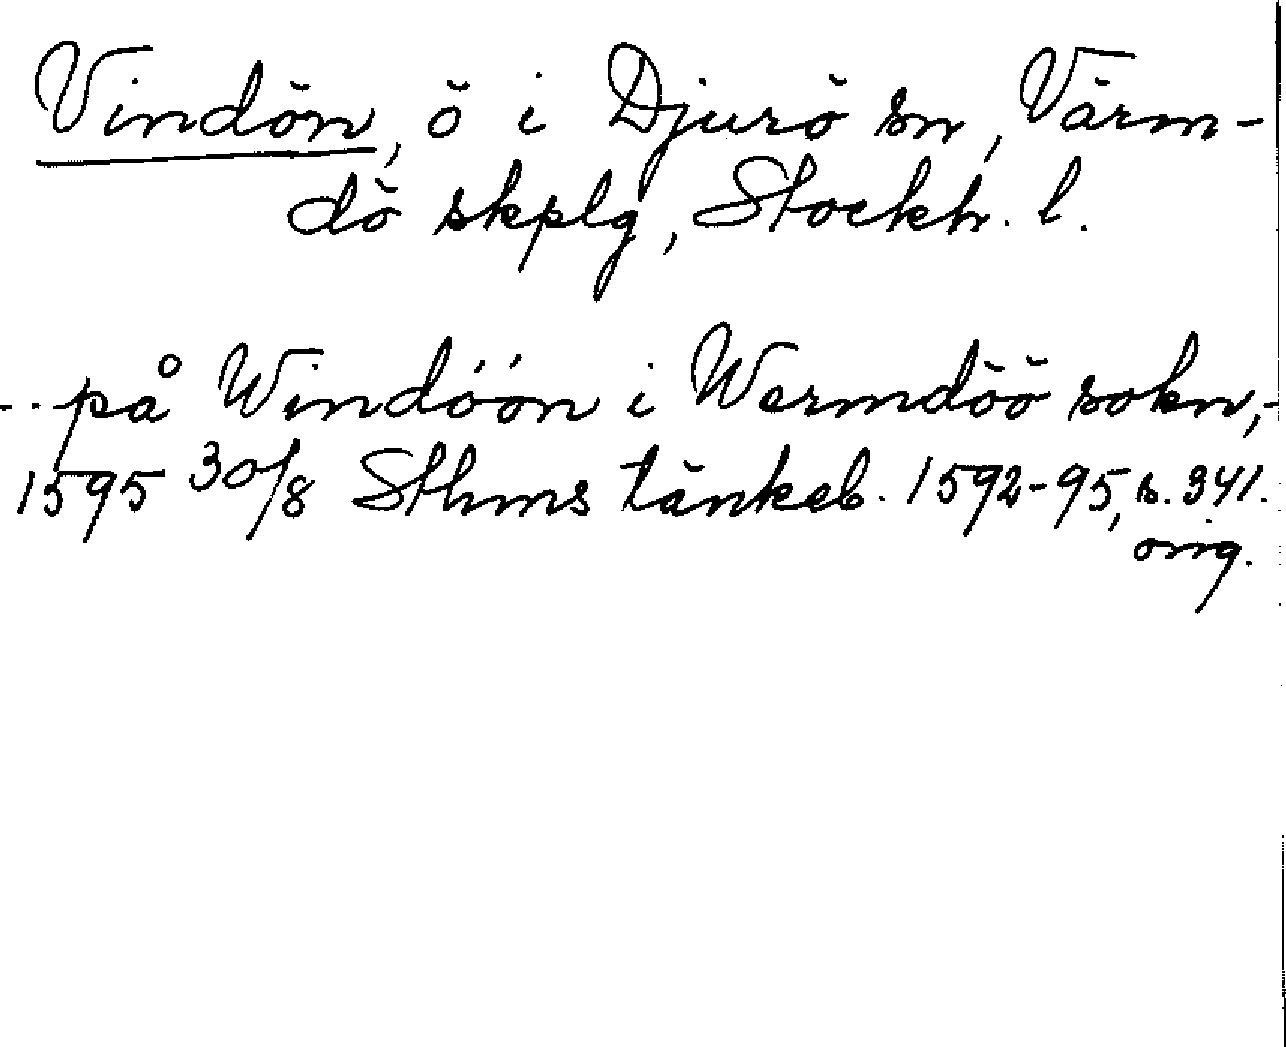 Vindön, ö i Djurö sn, Värm-
dö skplg, Stockh. l.
-.. på Windóón i Wermdöö sokn,-
1595 30/8 Sthms tänkeb. 1592-95, s. 341.
orig.